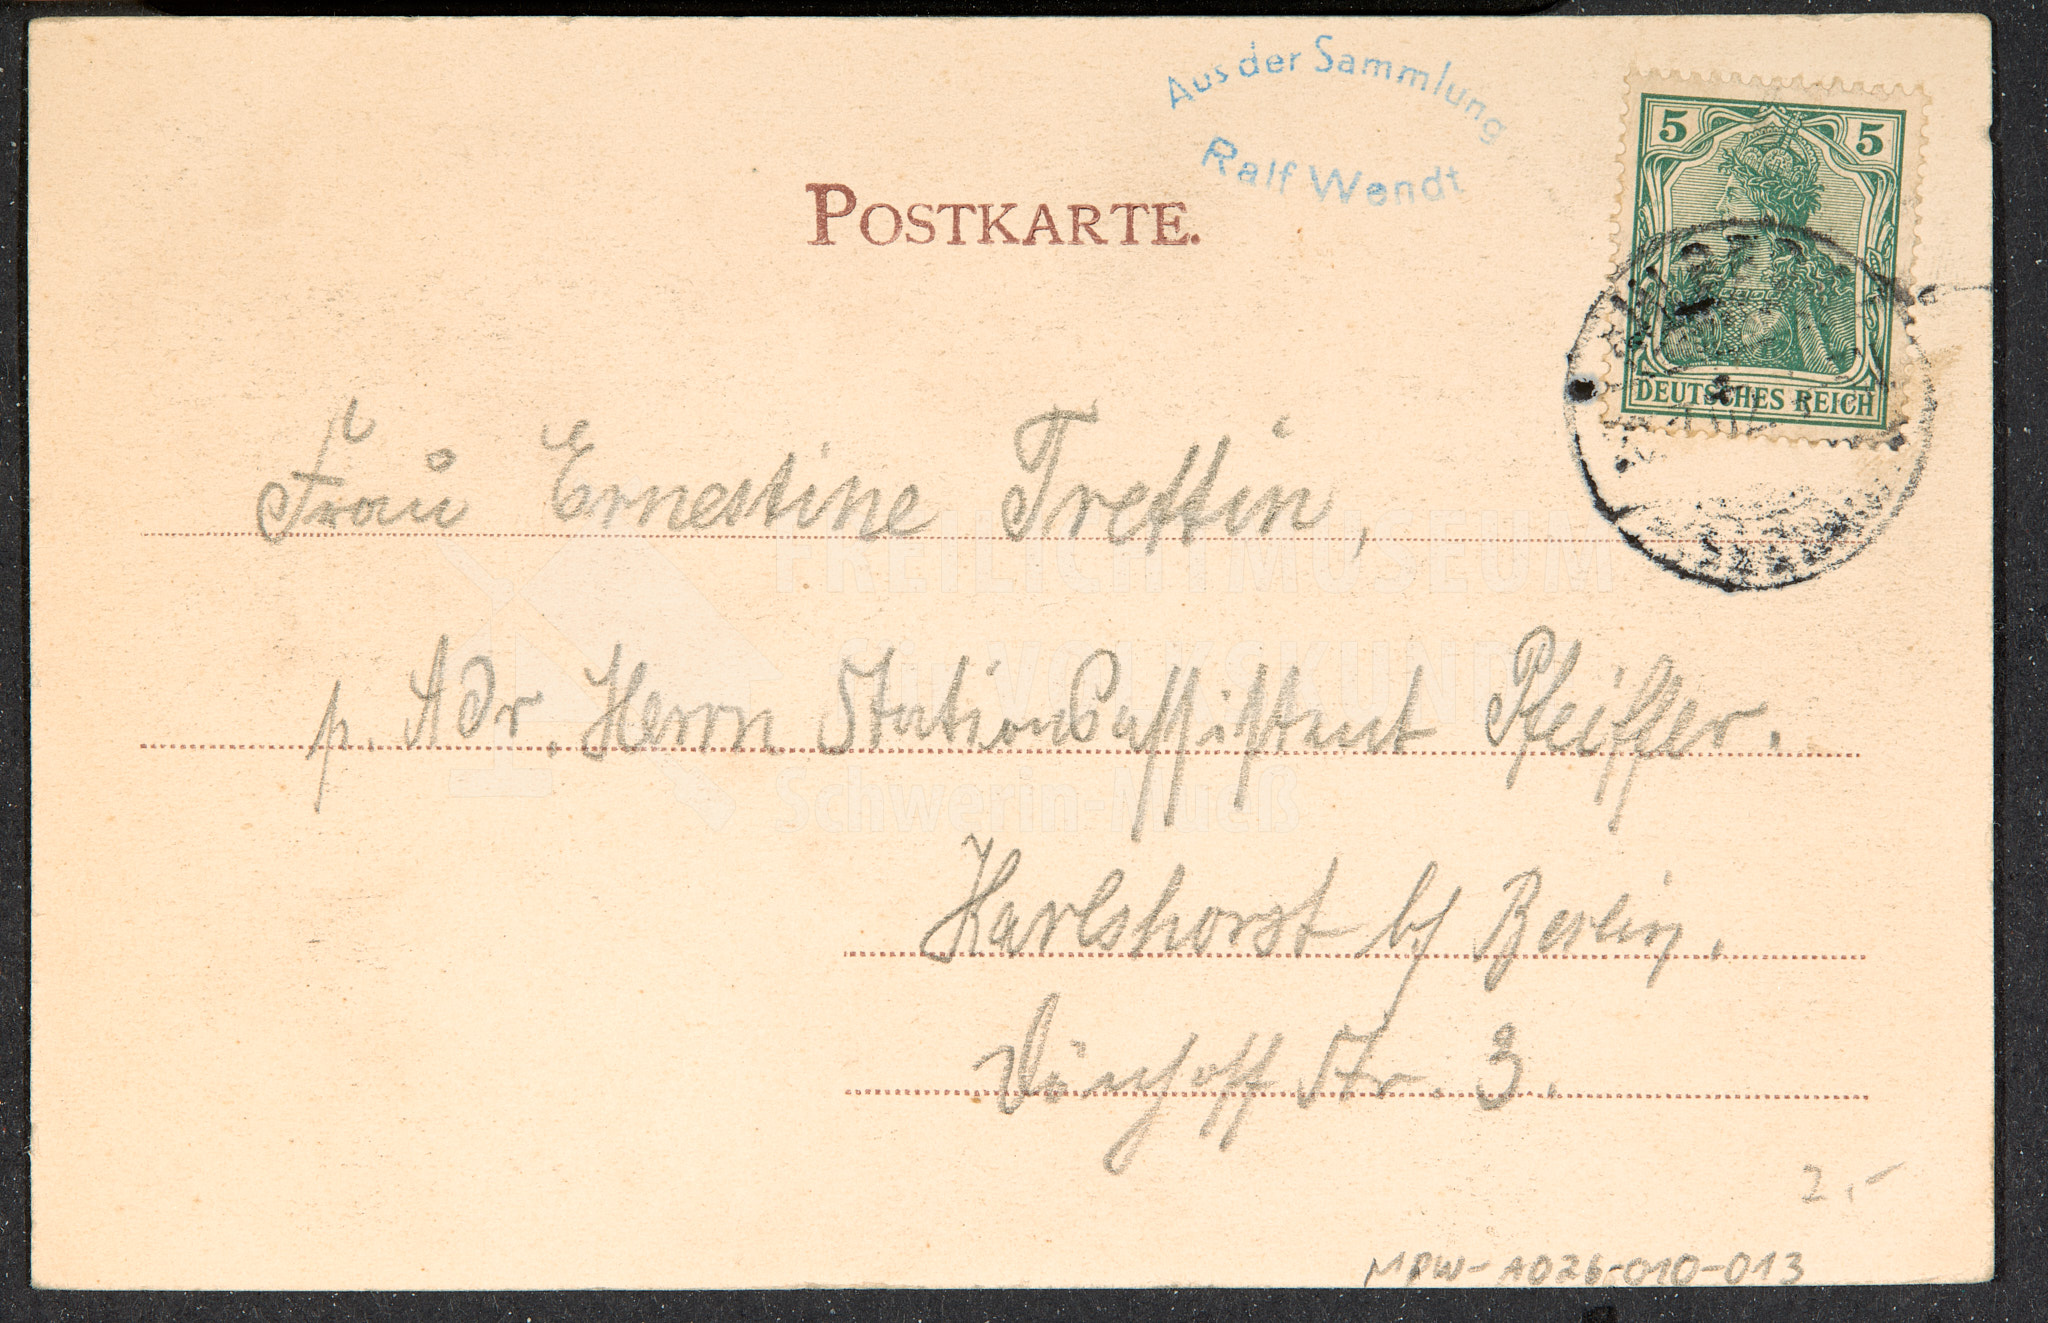 Aus der Sammlung
Ralf Wendt
POSTKARTE.
5 5
DEUTSCHES REICH
Frau Ernestine Trettin,
p. Adr. Herrn Stationsassistant Pfeiffer.
Karlshorst b/ Berlin.
Str. 3.
2,-
MPW-A026-010-013
FREILICHTMUSEUM
VOLKSKUNDE
Schwerin-Mueß